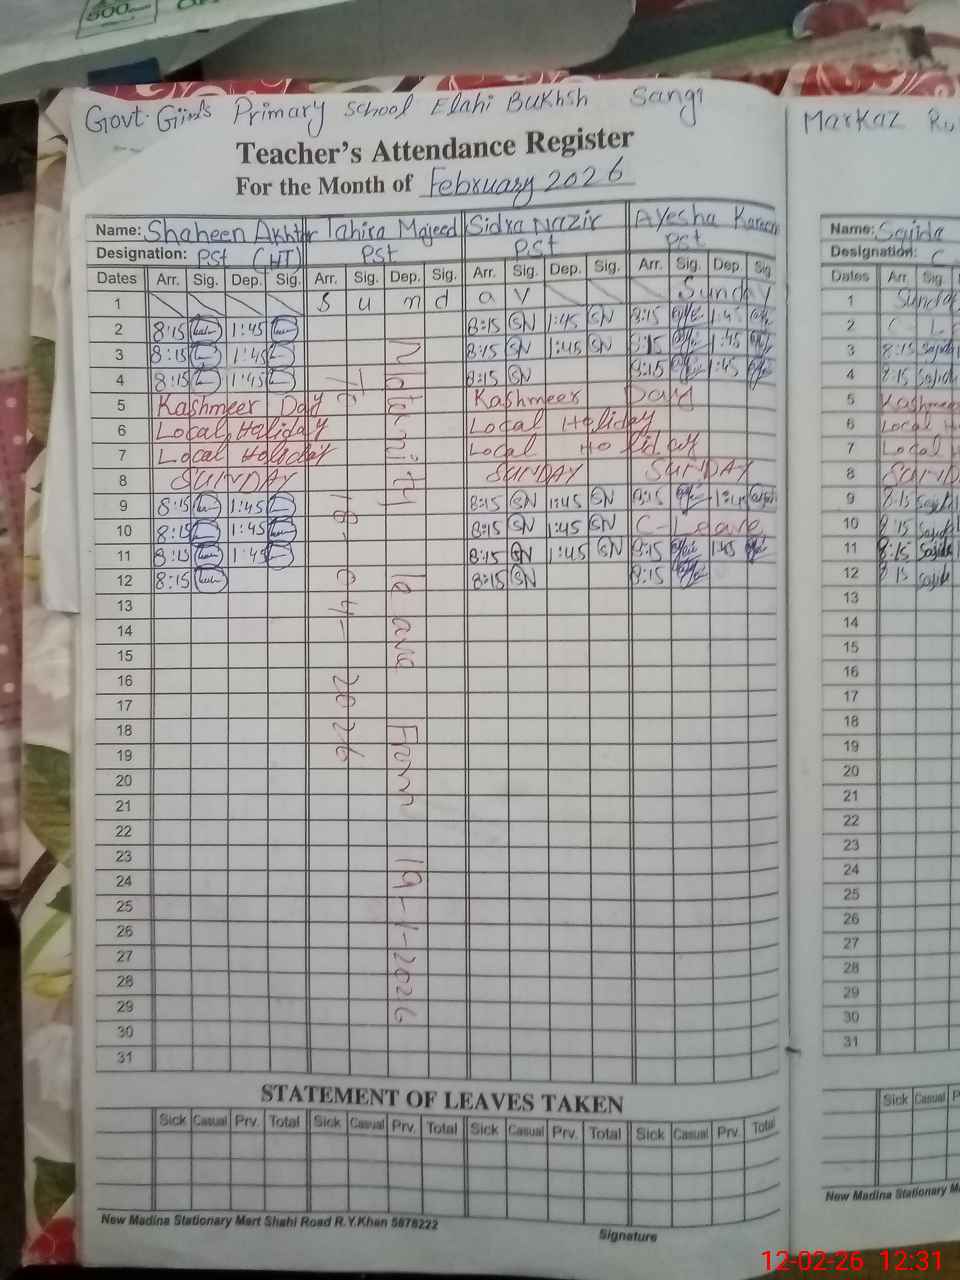 500
Govt. Girls Primary School Elahi Bukhsh Sangi
Teacher's Attendance Register
For the Month of February 2026
Name: Shaheen Akhtar Tahira Majeed Sidra Nazir Ayesha Kareem
Designation: PSt (HT) PSt PSt PSt
Dates Arr. Sig. Dep. Sig. Arr. Sig. Dep. Sig. Arr. Sig. Dep. Sig. Arr. Sig. Dep. Sig.
1 S u n d a y Sunday
2 8:15 1:45 8:15 SN 1:45 SN 8:15 1:45
3 8:15 1:45 8:15 SN 1:45 SN 8:15 1:45
4 8:15 1:45 8:15 SN 8:15 1:45
5 Kashmeer Day Kashmeer Day
6 Local Holiday Local Holiday
7 Local Holiday Local Holiday
8 SUNDAY SUNDAY SUNDAY
9 8:15 1:45 8:15 SN 1:45 SN 8:15
10 8:15 1:45 8:15 SN 1:45 SN C-Leave
11 8:15 1:45 8:15 SN 1:45 SN 8:15 1:45
12 8:15 8:15 SN 8:15
13
14
15
16
17
18
19
20
21
22
23
24
25
26
27
28
29
30
31
Maternity leave From 19-1-2026
To 18-04-2026
STATEMENT OF LEAVES TAKEN
Sick Casual Prv. Total Sick Casual Prv. Total Sick Casual Prv. Total Sick Casual Prv. Total
New Madina Stationary Mart Shahi Road R.Y.Khan 5878222
Signature
Markaz
Name: Sajida
Designation: C
Dates Arr. Sig
1 Sunday
2 C L
3 8:15 Sajida
4 8:15 Sajida
5 Kashmeer
6 Local
7 Local
8 SUND
9 8:15 Sajida
10 8:15 Sajida
11 8:15 Sajida
12 8:15 Sajida
13
14
15
16
17
18
19
20
21
22
23
24
25
26
27
28
29
30
31
Sick Casual
New Madina Stationary
12-02-26 12:31